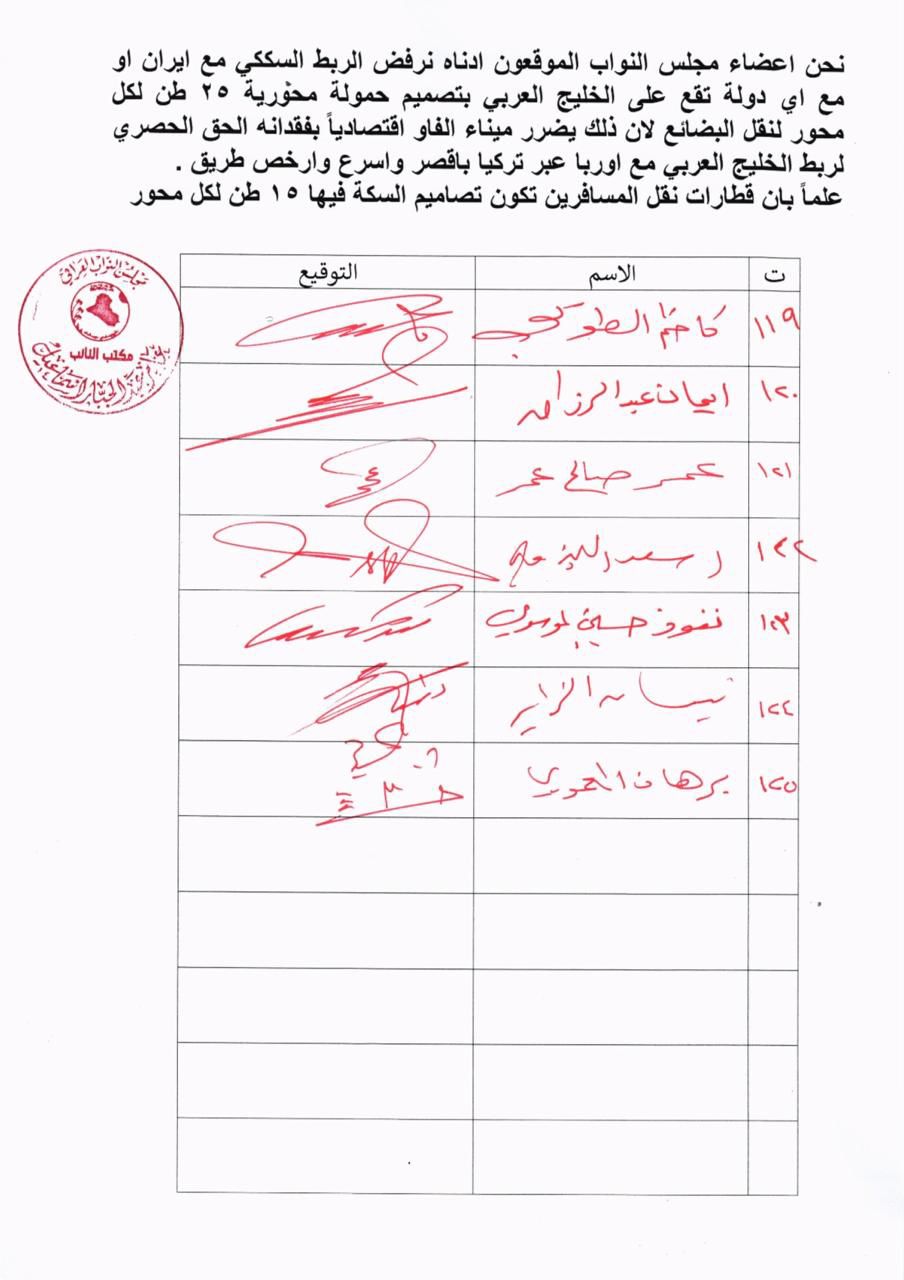 نحن اعضاء مجلس النواب الموقعون ادناه نرفض الربط السككي مع ايران او
مع اي دولة تقع على الخليج العربي بتصميم حمولة محورية ٢٥ طن لكل
محور لنقل البضائع لان ذلك يضرر ميناء الفاو اقتصادياً بفقدانه الحق الحصري
لربط الخليج العربي مع اوربا عبر تركيا باقصر واسرع وارخص طريق .
علماً بان قطارات نقل المسافرين تكون تصاميم السكة فيها ١٥ طن لكل محور
مجلس النواب العراقي
مكتب النائب
ت الاسم التوقيع
١١٩ كاظم الطوكي
١٢٠ ايمان عبد الرزاق
١٢١ عمر صالح عمر
١٢٢
١٢٣ نفوذ حسين الموسوي
١٢٤ نيسان الزاير
١٢٥ برهان